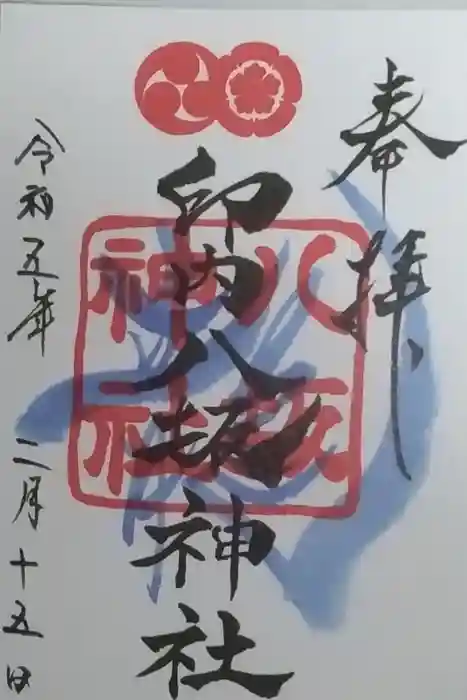 奉拝
印内八坂神社
八坂
神社
令和五年 二月十五日